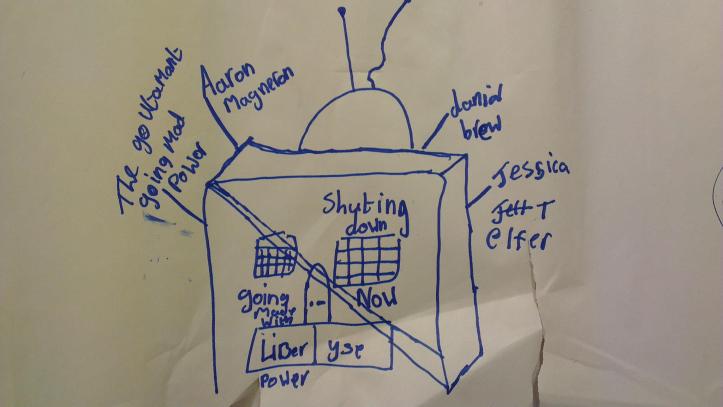 The goUbamant
going Mad
Power
Aaron
Magneron
danial
brew
Jessica
Jett T
elfer
Shuting
down
Now
going
Made
With
LiBer
yse
Power